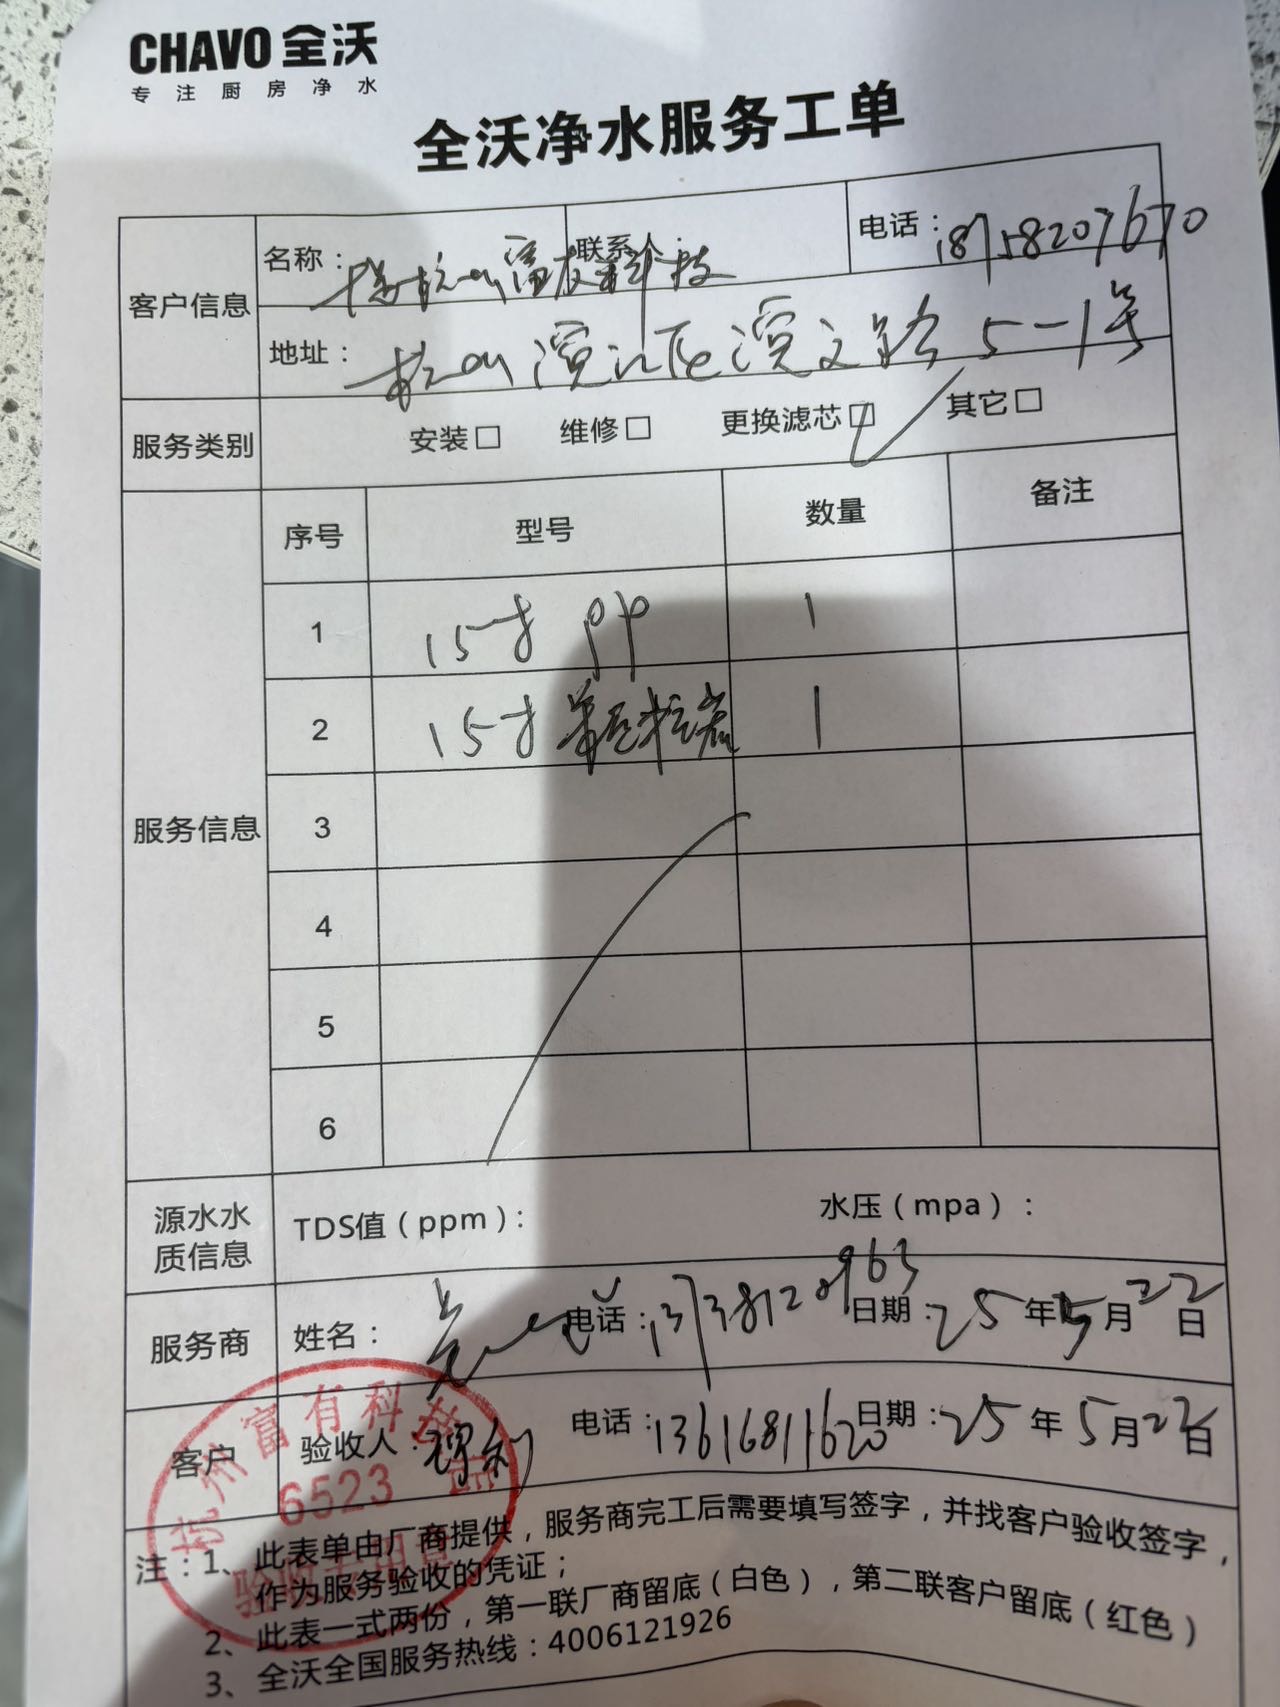 CHAVO 全沃
专注厨房净水
全沃净水服务工单
客户信息
名称： 杭州富友科技
联系人：
电话：18758207670
地址： 杭州滨江区滨文路5-1号
服务类别
安装□ 维修□ 更换滤芯□ 其它□
服务信息
序号 型号 数量 备注
1 15寸 PP 1
2 15寸 1
3
4
5
6
源水水质信息
TDS值（ppm）: 水压（mpa）:
服务商 姓名： 电话：13738120963 日期：25年5月22日
客户 验收人： 电话：13616811620 日期：25年5月22日
杭州富有科技
6523
验收专用章
注：1、此表单由厂商提供，服务商完工后需要填写签字，并找客户验收签字，
作为服务验收的凭证；
2、此表一式两份，第一联厂商留底（白色），第二联客户留底（红色）
3、全沃全国服务热线：4006121926